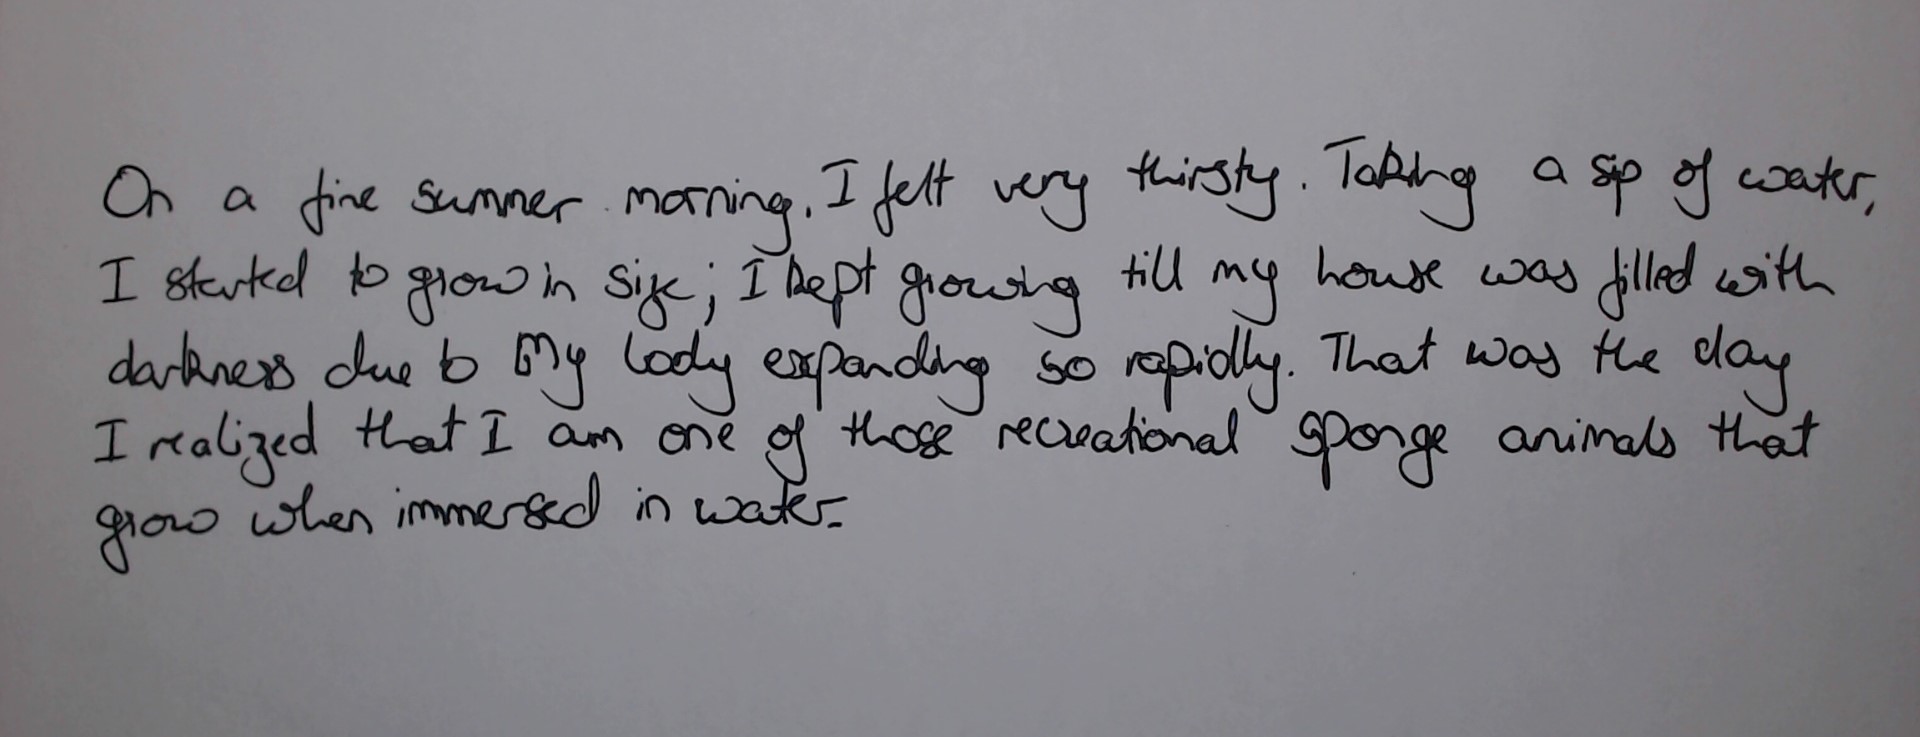 On a fine summer morning, I felt very thirsty. Taking a sip of water,
I started to grow in size; I kept growing till my house was filled with
darkness due to my body expanding so rapidly. That was the day
I realized that I am one of those recreational sponge animals that
grow when immersed in water.